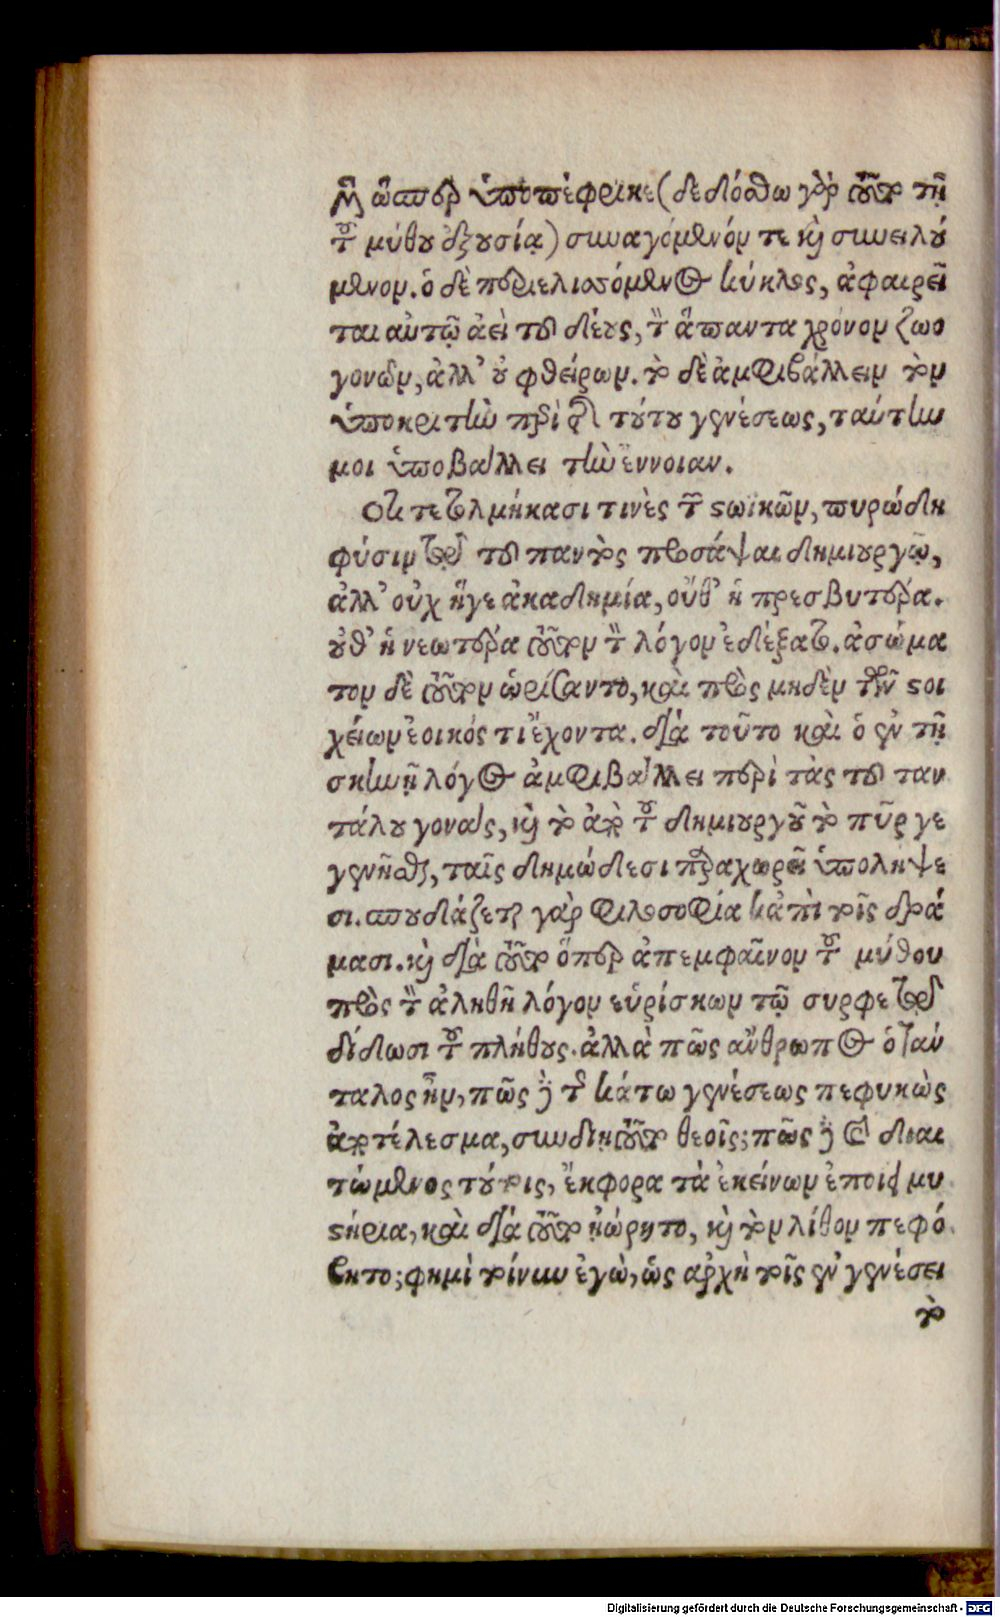 καὶ ὥσπερ ὑποπέφρικε (δεδόσθω γὰρ τοῦτο τῇ
τοῦ μύθου ἐξουσίᾳ) συναγόμενόν τε καὶ συνειλού
μενον. ὁ δὲ περιελισσόμενος κύκλος, ἀφαιρεῖ
ται αὐτῷ ἀεὶ τοῦ δέους, τὸν ἅπαντα χρόνον ζωο
γονῶν, ἀλλ' οὐ φθείρων. τὸ δὲ ἀμφιβάλλειν τὸν
ὑποκριτὴν περὶ τῆς τούτου γενέσεως, ταύτην
μοι ὑποβάλλει τὴν ἔννοιαν.
Οὔτε τολμήκασι τινὲς τῶν στωϊκῶν, πυρώδη
φύσιν τῷ τοῦ παντὸς προσάψαι δημιουργῷ,
ἀλλ' οὐχ ἥγε ἀκαδημία, οὔθ' ἡ πρεσβυτέρα.
οὐθ' ἡ νεωτέρα τοῦτον τὸν λόγον ἐδέξατο. ἀσώμα
τον δὲ τοῦτον ὡρίσαντο, καὶ πρὸς μηδὲν τῶν στοι
χείων ἐοικός τι ἔχοντα. διὰ τοῦτο καὶ ὁ ἐν τῇ
σκηνῇ λόγος ἀμφιβάλλει περὶ τὰς τοῦ ταν
τάλου γονὰς, καὶ τὸ ἀπὸ τοῦ δημιουργοῦ τὸ πῦρ γε
γενῆσθαι, ταῖς δημώδεσι παραχωρεῖ ὑπολήψε
σι. σπουδάζεται γὰρ φιλοσοφία κἀπὶ τοῖς δρά
μασι. καὶ διὰ τοῦτο ὅπερ ἀπεμφαῖνον τοῦ μύθου
πρὸς τὸν ἀληθῆ λόγον εὑρίσκων τῷ συρφετῷ
δίδωσι τοῦ πλήθους. ἀλλὰ πῶς ἄνθρωπος ὁ ταν
ταλος ἦν, πῶς δὲ τῆς κάτω γενέσεως πεφυκὼς
ἀποτέλεσμα, συνδιῃτᾶτο θεοῖς; πῶς δὲ ὁ διαι
τώμενος τούτοις, ἔκφορα τὰ ἐκείνων ἐποίει μυ
στήρια, καὶ διὰ τοῦτο ᾐώρητο, καὶ τὸν λίθον πεφό
βητο; φημὶ τοίνυν ἐγὼ, ὡς ἀρχὴ τοῖς ἐν γενέσει
τὸ
Digitalisierung gefördert durch die Deutsche Forschungsgemeinschaft - DFG